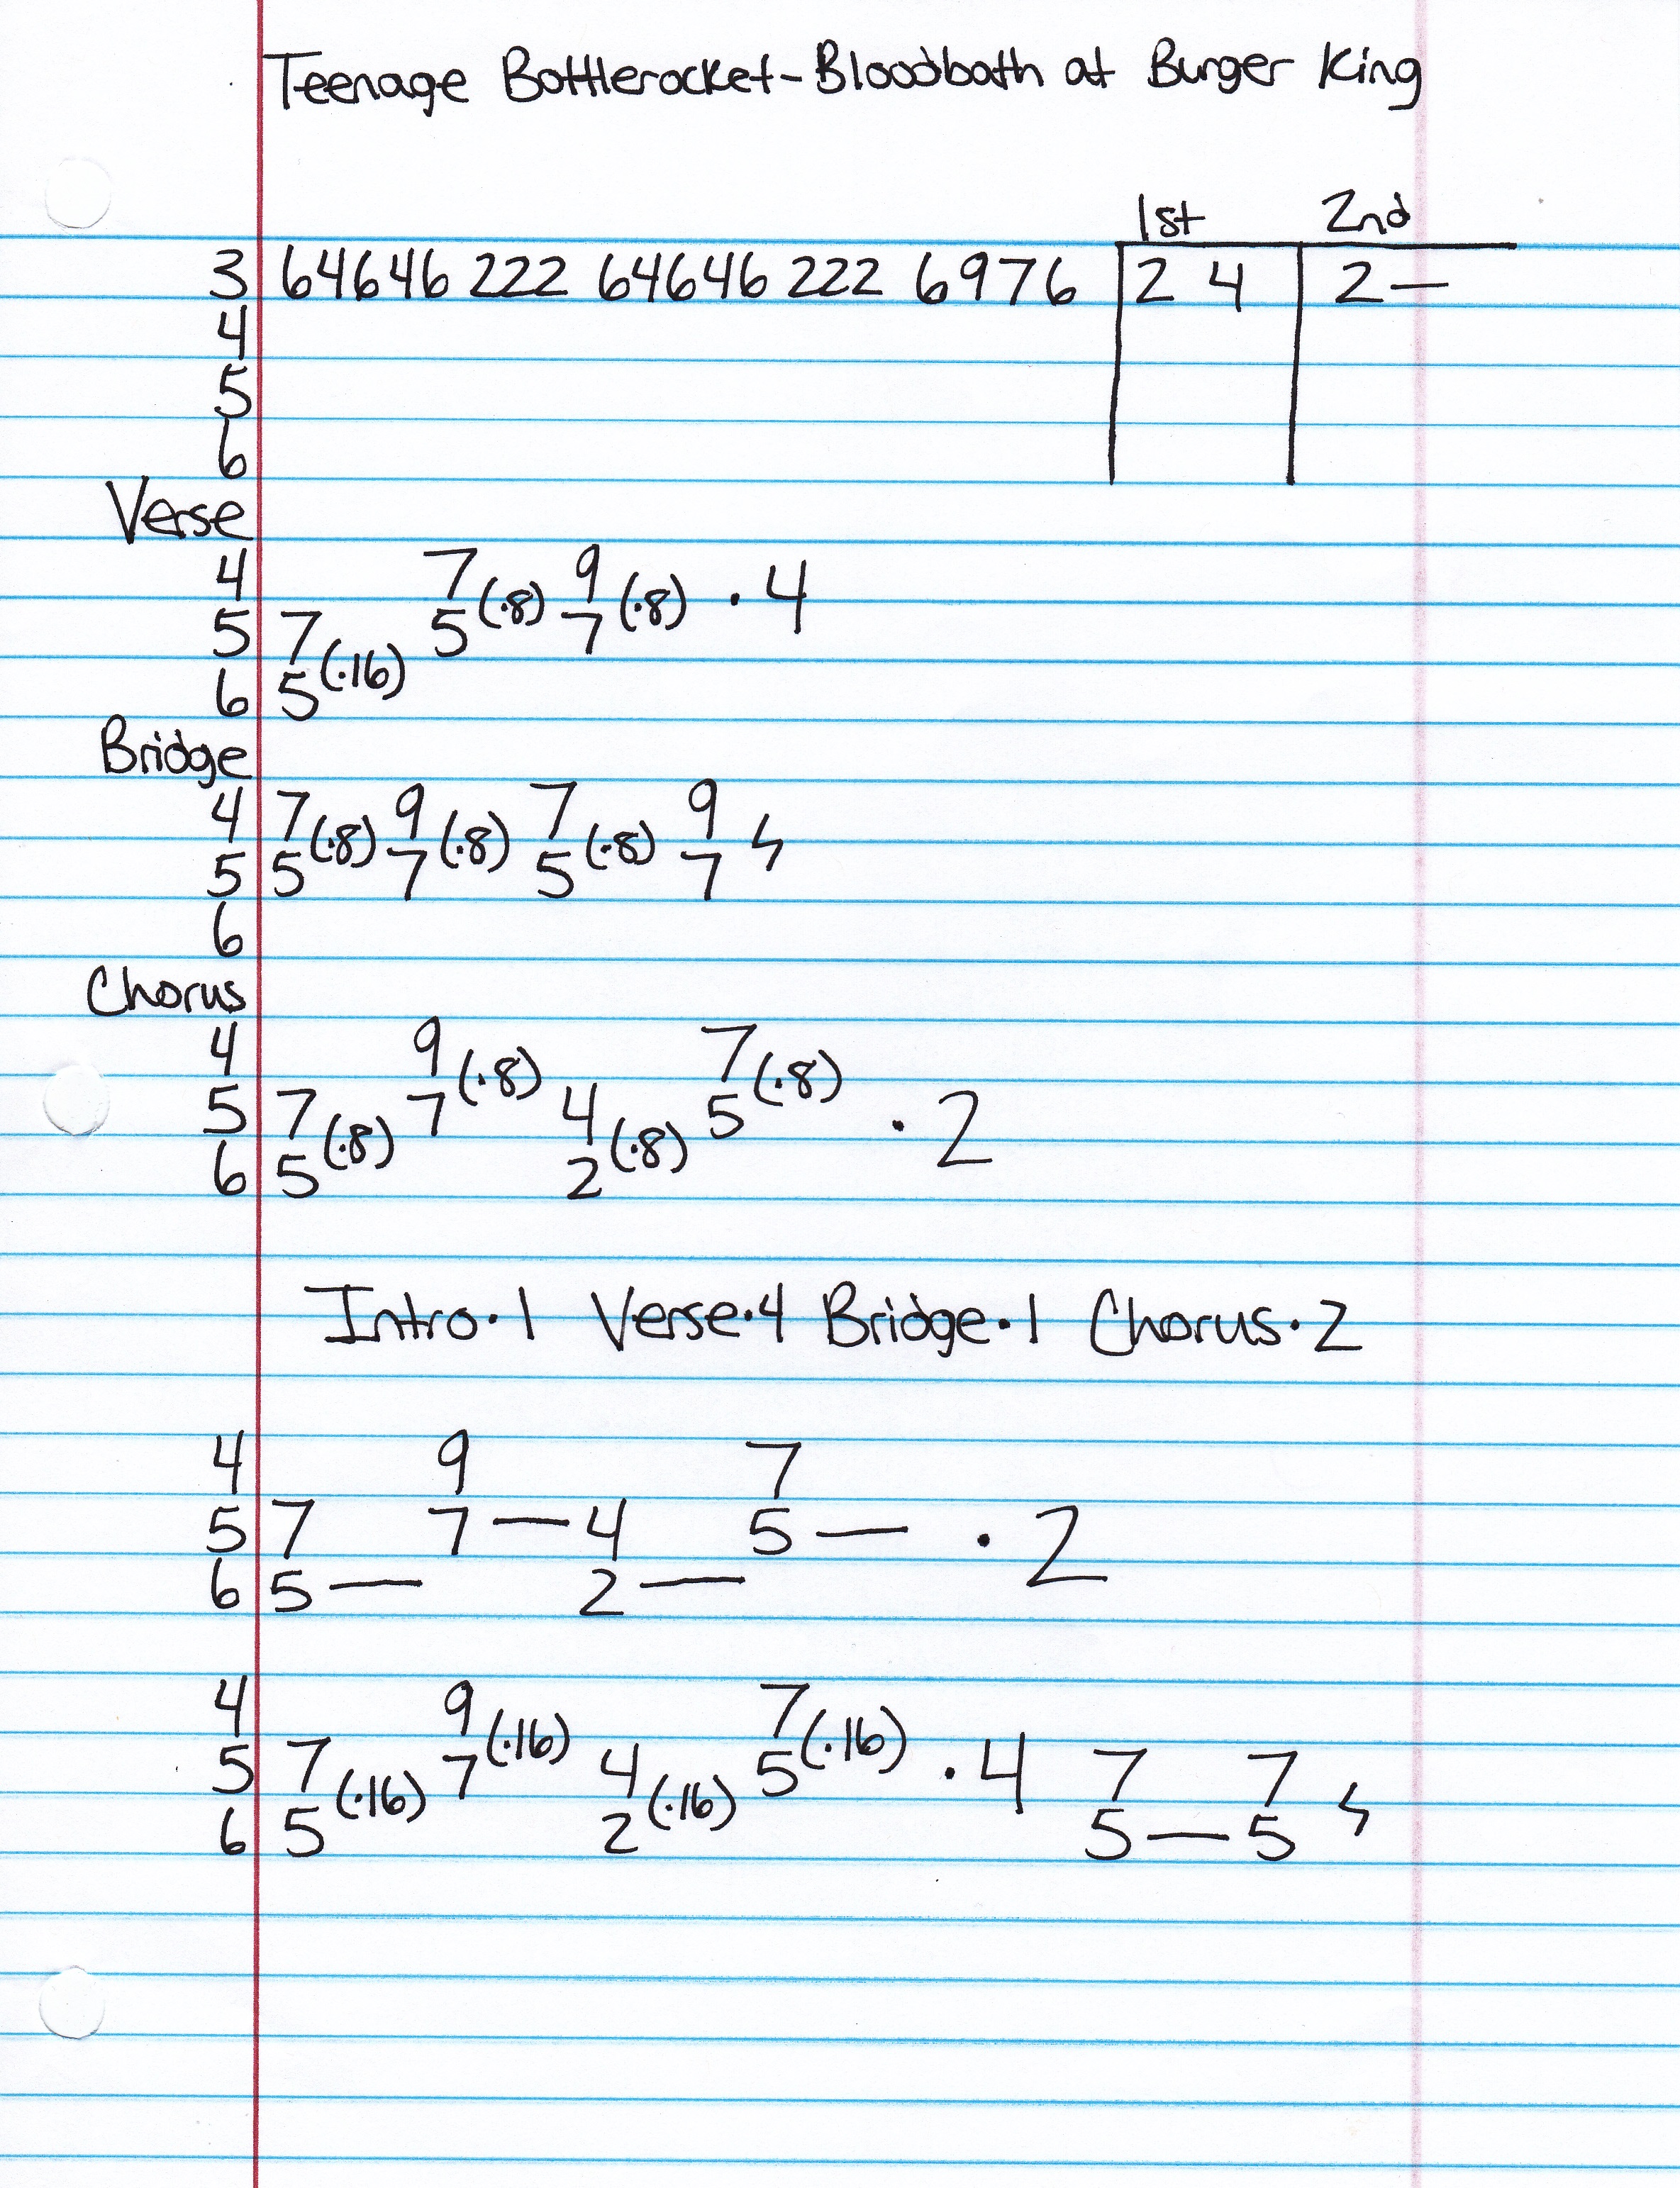 Teenage Bottlerocket-Bloodbath at Burger King
1st 2nd
3 64646 222 64646 222 6976 2 4 2—
4
5
6
Verse
4 7 9
5 7 5 (·8) 7 (·8) · 4
6 5 (·16)
Bridge
4 7 9 7 9
5 5 (·8) 7 (·8) 5 (·8) 7 ϟ
6
Chorus
4 9 7
5 7 7 (·8) 4 5 (·8) · 2
6 5 (·8) 2 (·8)
Intro·1 Verse·4 Bridge·1 Chorus·2
4 9 7
5 7 7 — 4 5 — · 2
6 5 — 2 —
4 9 7
5 7 7 (·16) 4 5 (·16) · 4 7 7
6 5 (·16) 2 (·16) 5 — 5 ϟ